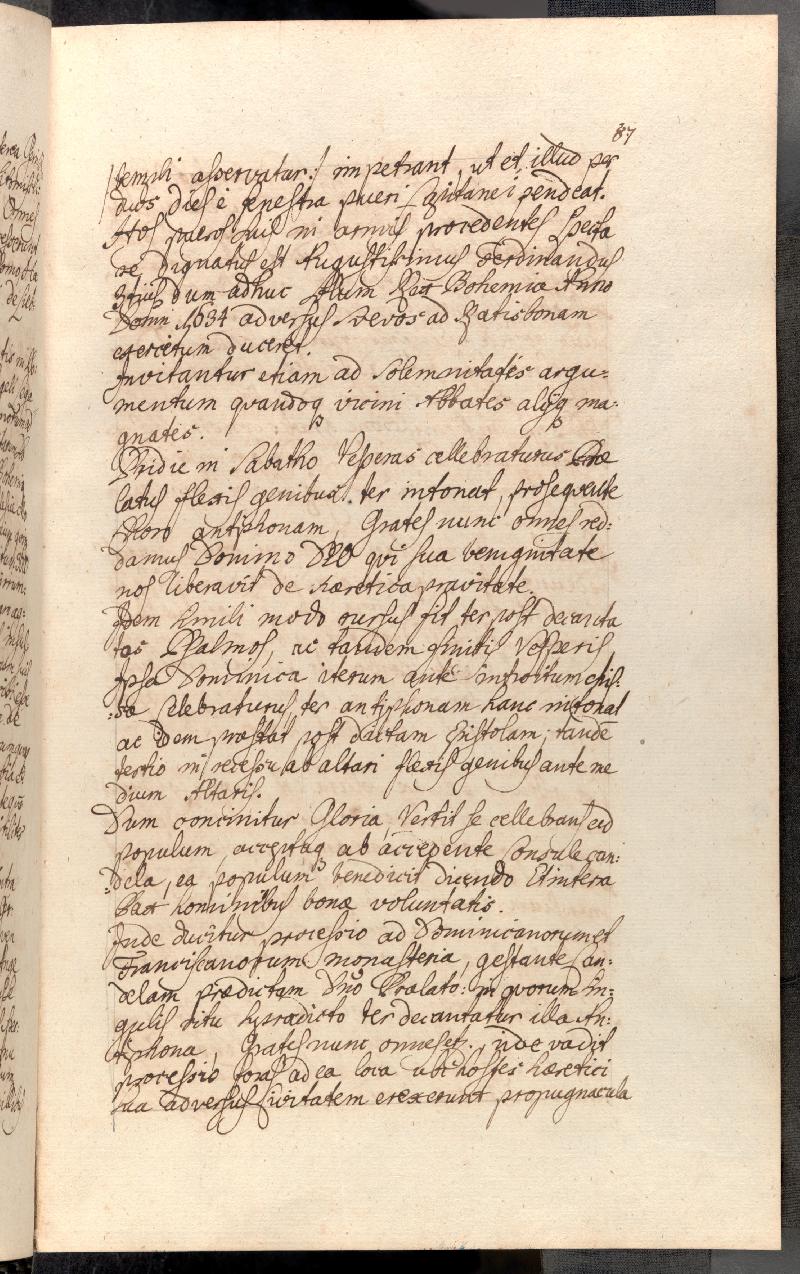 87
templi asservatur:/ impetrant, ut et illud per
duos dies è fenestra pueri pendeat.
Hos pueros in armis procedentes specta
re dignatus est Augustissimus Ferdinandus
3tius dum adhuc Rex Bohemiæ Anno
Domi 1634 adversus Svevos ad Ratisbonam
exercitum duceret.
Invitantur etiam ad solemnitatis argu=
mentum quandoq vicini Abbates alijq ma-
gnates.
Pridie in Sabatho Vesperas cellebraturus Præ
latus flexis genibus ter intonat, prosequente
choro antiphonam, Grates nunc omnes red:
damus Domino DEO qui sua benignitate
nos liberavit de hæretica pravitate.
Idem simili modo rursus fit ter post decanta
tos Psalmos, ac tandem finitis Vesperis,
Ipsa Dominica iterum ante introitum Mis:
:sæ celebraturus ter antiphonam hanc intonat
ac idem præstat post dictam Epistolam, tandē
tertio in recessu ab altari flexis genibus ante me
dium Altaris.
Dum concinitur Gloria, Vertit se cellebrans ad
populum, acceptaq ab accedente Consule can:
:dela, ea populum benedicit dicendo Et in terra
Pax hominibus bonæ voluntatis.
Inde ducitur processio ad Dominicanorum et
Franciscanorum monasteria, gestante can:
delam prædictam Dno Prælato: in quorum sin:
gulis ritu supradicto ter decantatur illa An:
tiphona, Grates nunc omnes et. inde vadit
processio foras ad ea loca ubi hostes hæretici
sua adversus Civitatem erexerunt propugnacula